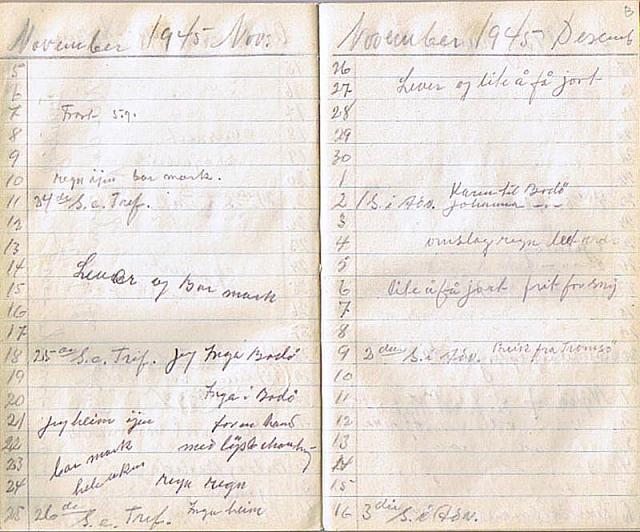 November 1945 Nov:
5
6
7 Frost 5 g.
8
9
10 regn ijen bar mark.
11 24de S. e. Tref.
12
13
14 Lever og Bar mark
15
16
17
18 25de S. e. Tref. jeg Inga Bodö
19
20 Inga i Bodö
21 jeg heim ijen for en haud
22 bar mark med
23
24 hele uka regn regn
25 26de S. e. Tref. Inga heim
November 1945 Desemb
26
27 Lever og lite å få jort
28
29
30
1 Karen til Bodö
2 1 S. i Adv. Johanna -..-
3
4 omslag regn
5
6 lite å få jort frit for snj
7
8
9 2den S. i Adv. Reisk fra Tromsö
10
11
12
13
14
15
16 3die S. i Adv.